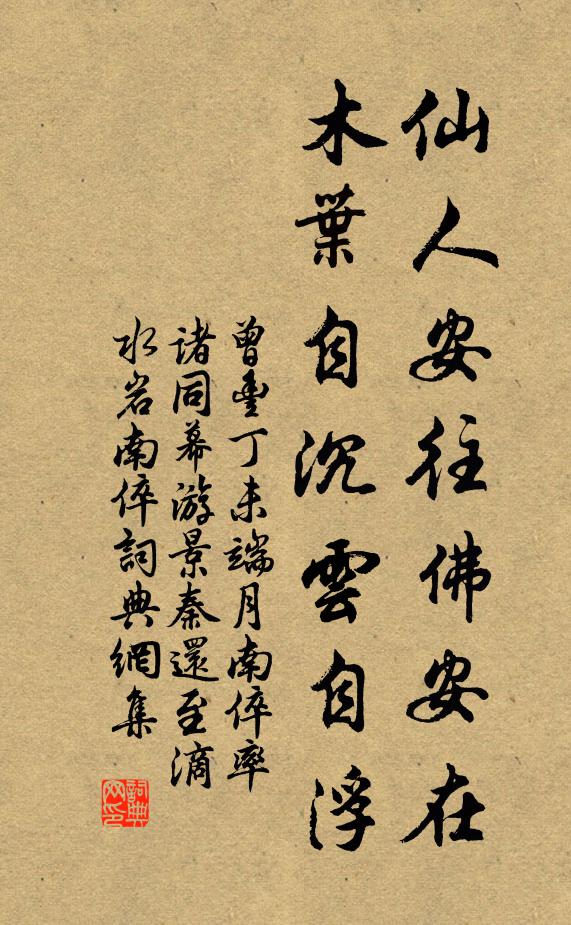 仙人安往佛安在
木葉自沉雲自浮
曾豐丁未端月南倅率
諸同幕游景秦還至滴
水岩南倅詞典網集
詞典网印